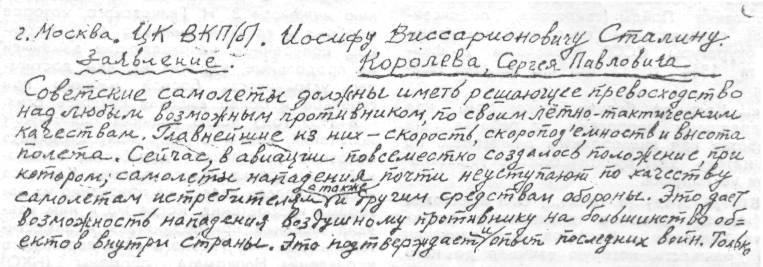 г. Москва. ЦК ВКП(б). Иосифу Виссарионовичу Сталину.
Заявление. Королева, Сергея Павловича
Советские самолеты должны иметь решающее превосходство
над любым возможным противником, по своим лётно-тактическим
качествам. Главнейшие из них – скорость, скоропод'емность и высота
полета. Сейчас, в авиации повсеместно создалось положение, при
котором, самолеты нападения почти неуступают по качеству
самолетам истребителям, а также и другим средствам обороны. Это дает
возможность нападения воздушному противнику на большинство об-
ектов внутри страны. Это подтверждает и опыт последних войн. Только